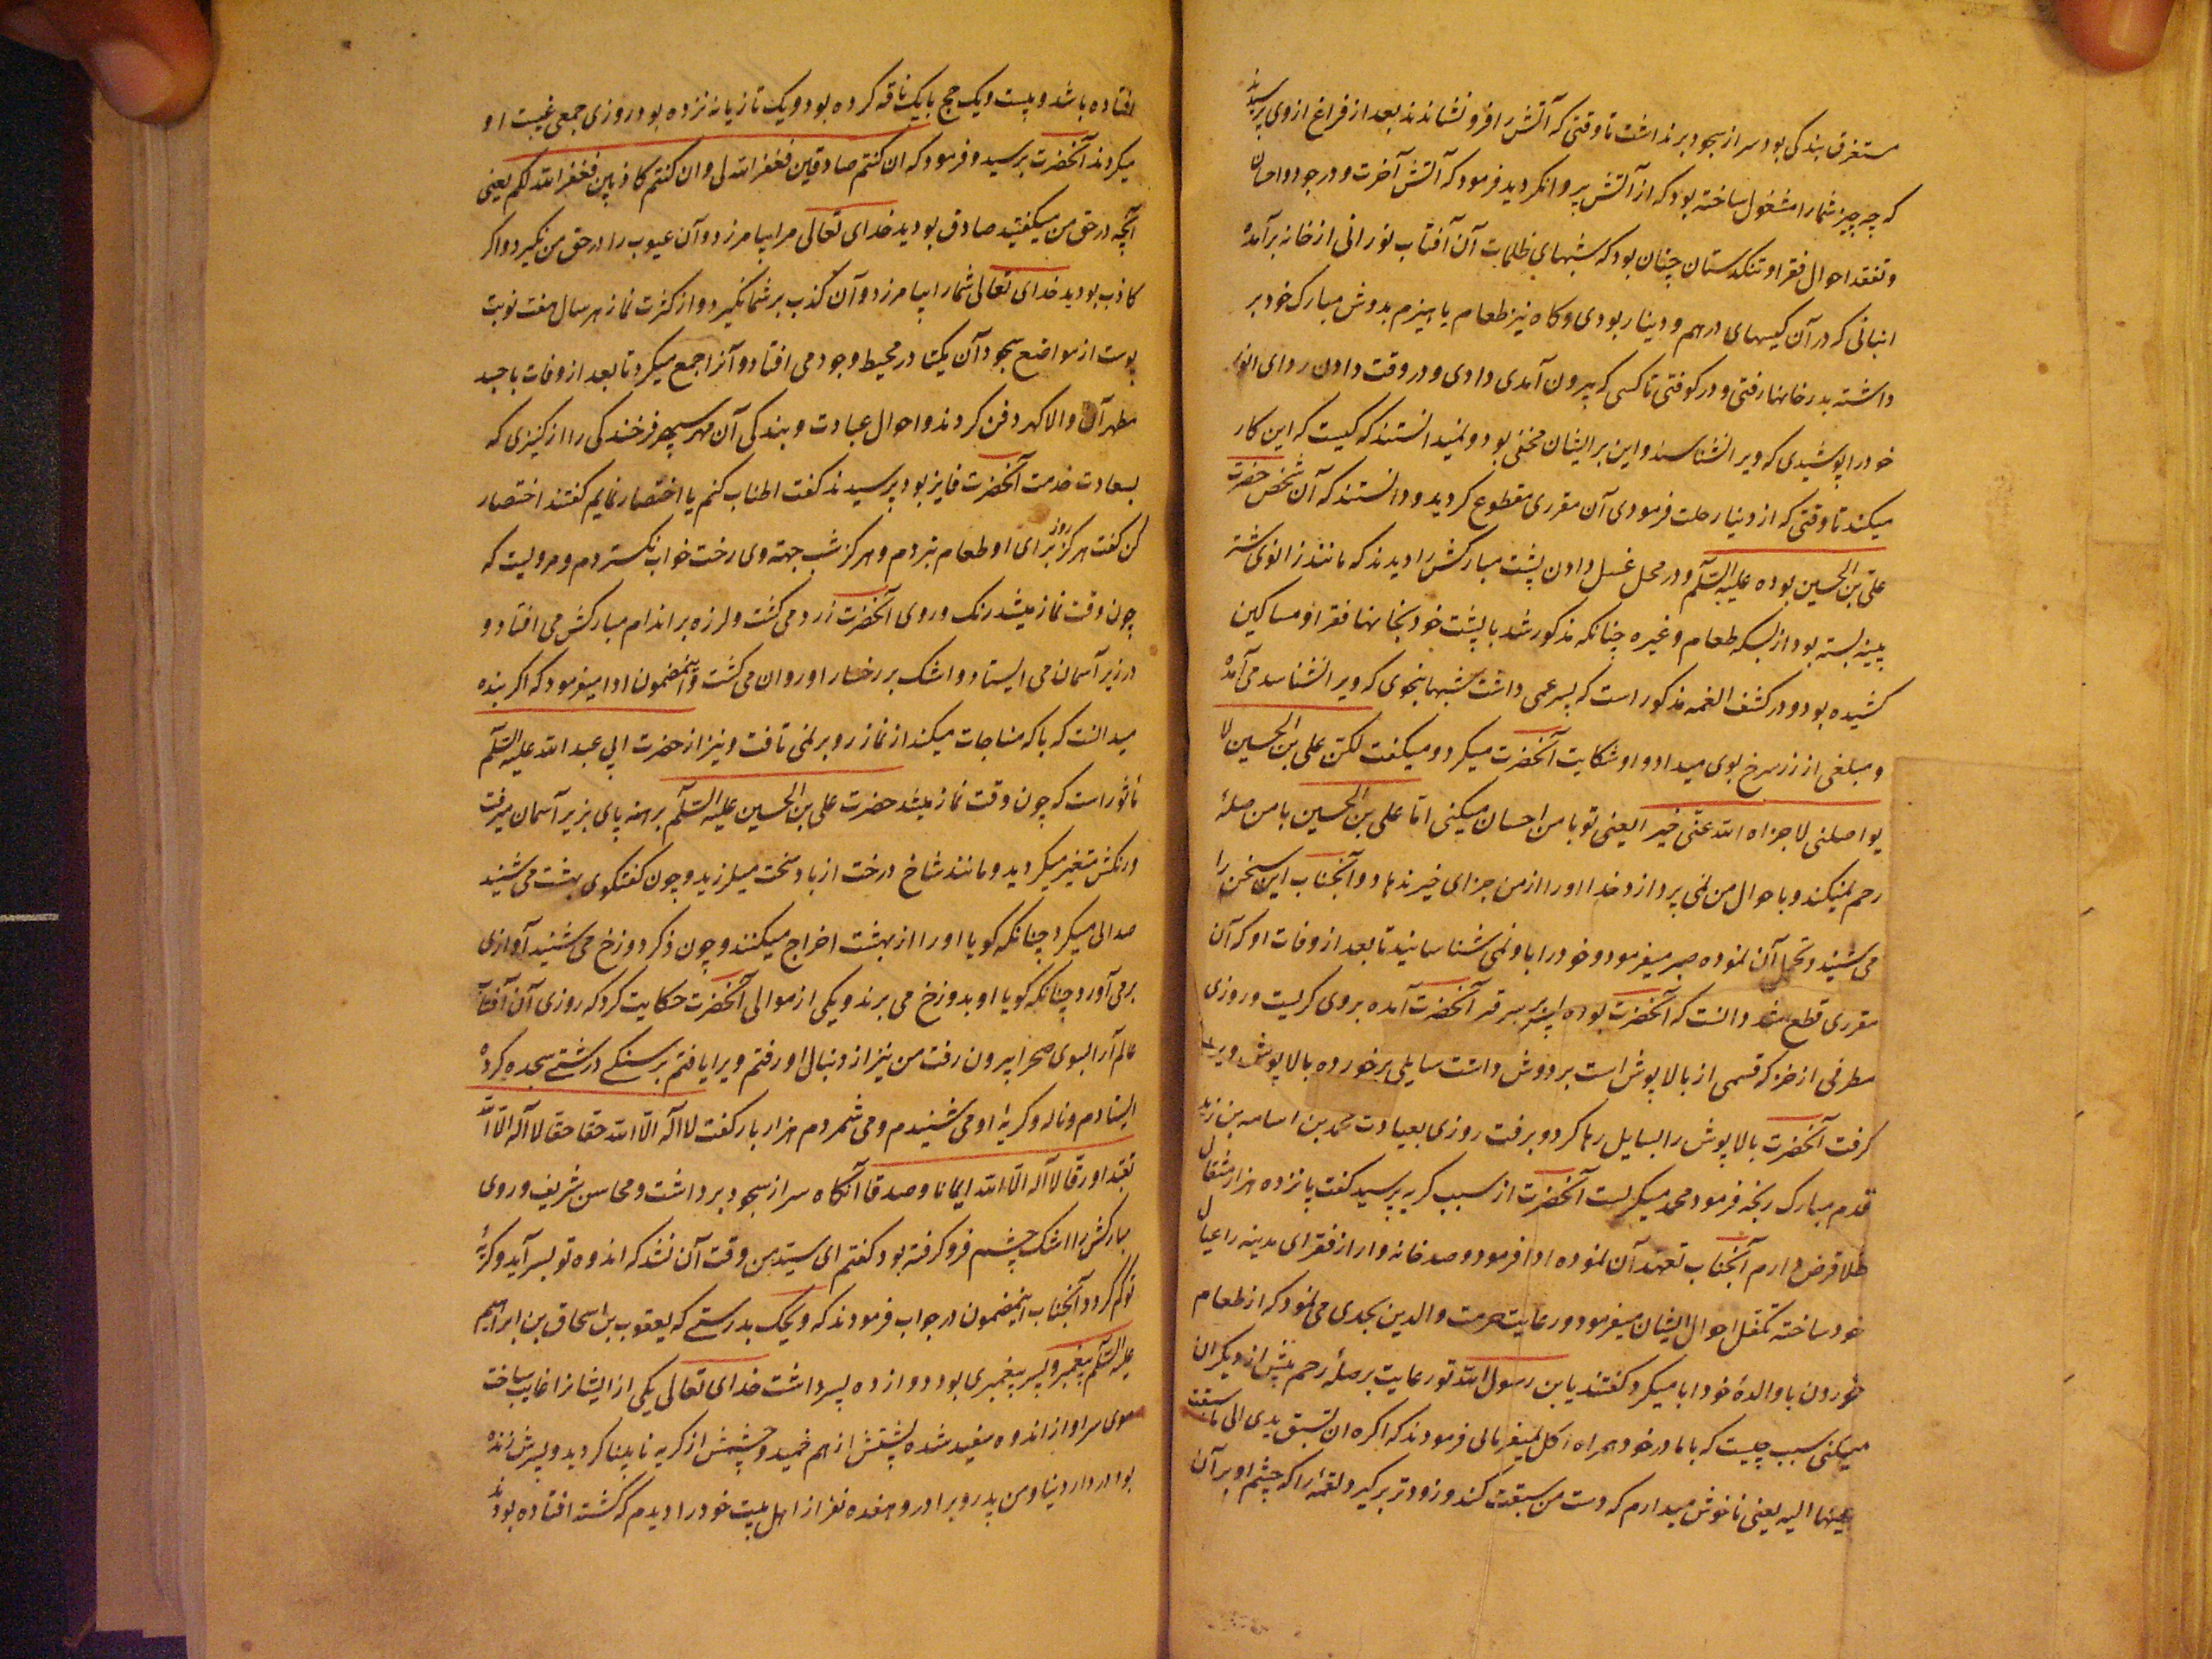 مستغرق بندکی بود سر از سجود برنداشت تا وقتی که آتش را فرو نشاندند بعد از فراغ از وی پرسیدند
که چه چیز شما را مشغول ساخته بود که از آتش پروا نکردید فرمود که آتش آخرت و در جود و احسان
و تفقد احوال فقرا و تنکدستان چنان بود که شبهای ظلمات آن آفتاب نورانی از خانه برآمده
انبانی که در آن کیسهای درهم و دینار بودی و کاه نیز طعام یا هیزم بدوش مبارک خود بر
داشته بدر خانها رفتی و در کوفتی تا کسی که بیرون آمدی دادی و در وقت دادن ردای انور
خود را پوشیدی که ویرا نشناسند و این بر ایشان مخفی بود و نمیدانستند که کیست که این کار
میکند تا وقتی که از دنیا رحلت فرمودی آن مقرری مقطوع کردید و دانستند که آن شخص حضرت
علی بن الحسین بوده علیه السلام و در محل غسل دادن پشت مبارکش را دیدند که مانند زانوی شتر
پینه بسته بود از بسکه طعام و غیره چنانکه مذکور شد با پشت خود بخانهها فقرا و مساکین
کشیده بود و در کشف الغمه مذکور است که پسر عمی داشت شبها بنحوی که ویرا نشناسد می آمد
و مبلغی از زر سرخ بوی میداد و او شکایت آنحضرت میکرد و میکفت لکن علی بن الحسین لا
یواصلنی لا جزاه الله عنی خیرا یعنی تو با من احسان میکنی اما علی بن الحسین با من صلهٔ
رحم نمیکند و باحوال من نمی پردازد خدا او را از من جزای خیر ندهاد و آنجناب این سخن را
می شنید و تحمل آن نموده صبر میفرمود و خود را باو نمی شناسانید تا بعد از وفات او که آن
مقرری قطع شد دانست که آنحضرت بوده پس بر سر قبر آنحضرت آمده بروی کریست و روزی
مطرفی از خز که قسمی از بالاپوش است بر دوش داشت سایلی برخورده بالاپوش ویرا
کرفت آنحضرت بالاپوش را بسایل رها کرد و برفت روزی بعیادت محمد بن اسامه بن زید
قدم مبارک رنجه فرمود محمد میکریست آنحضرت از سبب کریه پرسید کفت پانزده هزار مثقال
طلا قرض دارم آنجناب تعهد آن نموده ادا فرمود و صد خانه وار از فقرای مدینه را عیال
خود ساخته تکفل احوال ایشان میفرمود و رعایت حرمت والدین بحدی می نمود که از طعام
خوردن با والدهٔ خود ابا میکرد کفتند یابن رسول الله تو رعایت بر صلهٔ رحم بیش از دیکران
میکنی سبب چیست که با مادر خود همراه اکل نمیفرمائی فرمودند که اکره ان تسبق یدی الی ما سبقت
عینها الیه یعنی ناخوش میدارم که دست من سبقت کند و زودتر برکیرد لقمهٔ را که چشم او بر آن
افتاده باشد و بیست و یک حج با یک ناقه کرده بود و یک تازیانه نزده بود روزی جمعی غیبت او
میکردند آنحضرت برسید و فرمود که ان کنتم صادقین فغفر الله لی و ان کنتم کاذبین فغفر الله لکم یعنی
آنچه در حق من میکفتید صادق بودید خدای تعالی مرا بیامرزد و آن عیوب را در حق من نکیرد و اکر
کاذب بودید خدای تعالی شما را بیامرزد و آن کذب بر شما نکیرد و از کثرت نماز هر سال هفت نوبت
پوست از مواضع سجود آن یکتا در محیط وجود می افتاد و آنرا جمع میکرد تا بعد از وفات با جسد
مطهر آن والا کهر دفن کردند و احوال عبادت و بندکی آن مهر سپهر فرخندکی را از کنیزی که
بسعادت خدمت آنحضرت فایز بود پرسیدند کفت اطناب کنم یا اختصار نمایم کفتند اختصار
کن کفت هرکز روز برای او طعام نبردم و هرکز شب جهت وی رخت خواب نکستردم و مرویست که
چون وقت نماز میشد رنک و روی آنحضرت زرد می کشت و لرزه بر اندام مبارکش می افتاد و
در زیر آسمان می ایستاد و اشک بر رخسار او روان می کشت و اینمضمون ادا میفرمود که اکر بنده
میدانست که با که مناجات میکند از نماز رو بر نمی تافت و نیز از حضرت ابی عبد الله علیه السلام
ماثور است که چون وقت نماز میشد حضرت علی بن الحسین علیه السلام برهنه پای بزیر آسمان میرفت
و رنکش متغیر میکردید و مانند شاخ درخت از باد سخت میلرزید و چون کفتکوی بهشت می شنید
صدائی میکرد چنانکه کویا او را از بهشت اخراج میکنند و چون ذکر دوزخ می شنید آوازی
بر می آورد چنانکه کویا او بدوزخ می برند و یکی از موالی آنحضرت حکایت کرد که روزی آن آفتاب
عالم آرا بسوی صحرا بیرون رفت من نیز از دنبال او رفتم ویرا یافتم بر سنکی درشتی سجده کرده
ایستادم و ناله و کریهٔ او می شنیدم و می شمردم هزار بار کفت لا اله الا الله حقا حقا لا اله الا الله
تعبدا و رقا لا اله الا الله ایمانا و صدقا آنکاه سر از سجود برداشت و محاسن شریف و روی
مبارکش را اشک چشم فرو کرفته بود کفتم ای سید من وقت آن نشد که اندوه تو بسر آید و کریهٔ
تو کم کردد آنجناب اینمضمون در جواب فرمودند که ویحک بدرستی که یعقوب بن اسحاق بن ابراهیم
علیه السلم پیغمبر و پسر پیغمبری بود دوازده پسر داشت خدای تعالی یکی از ایشانرا غایب ساخت
موی سر او از اندوه سفید شده پشتش از هم خمید و چشمش از کریه نابینا کردید و پسرش زنده
بود در دار دنیا و من پدر و برادر و هفده نفر از اهل بیت خود را دیدم که کشته افتاده بودند